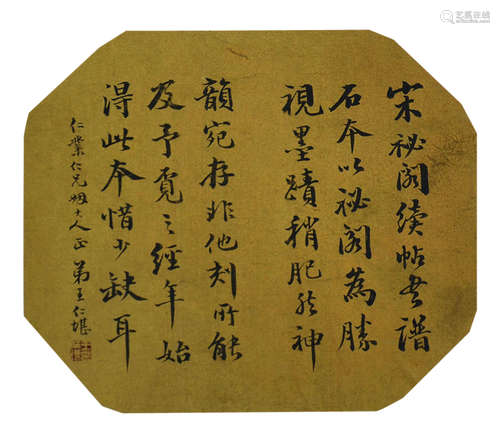 宋祕阁續帖書譜
石本以祕阁為勝
視墨蹟稍肥然神
韻宛存非他刻所能
及予覓之經年始
得此本惜少缺耳
仁業仁兄姻大人正 弟王仁堪